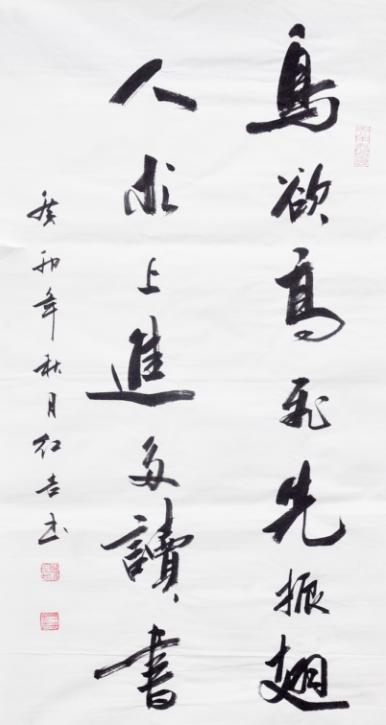 鳥欲高飛先振翅
人求上進多讀書
癸卯年秋月红吉书